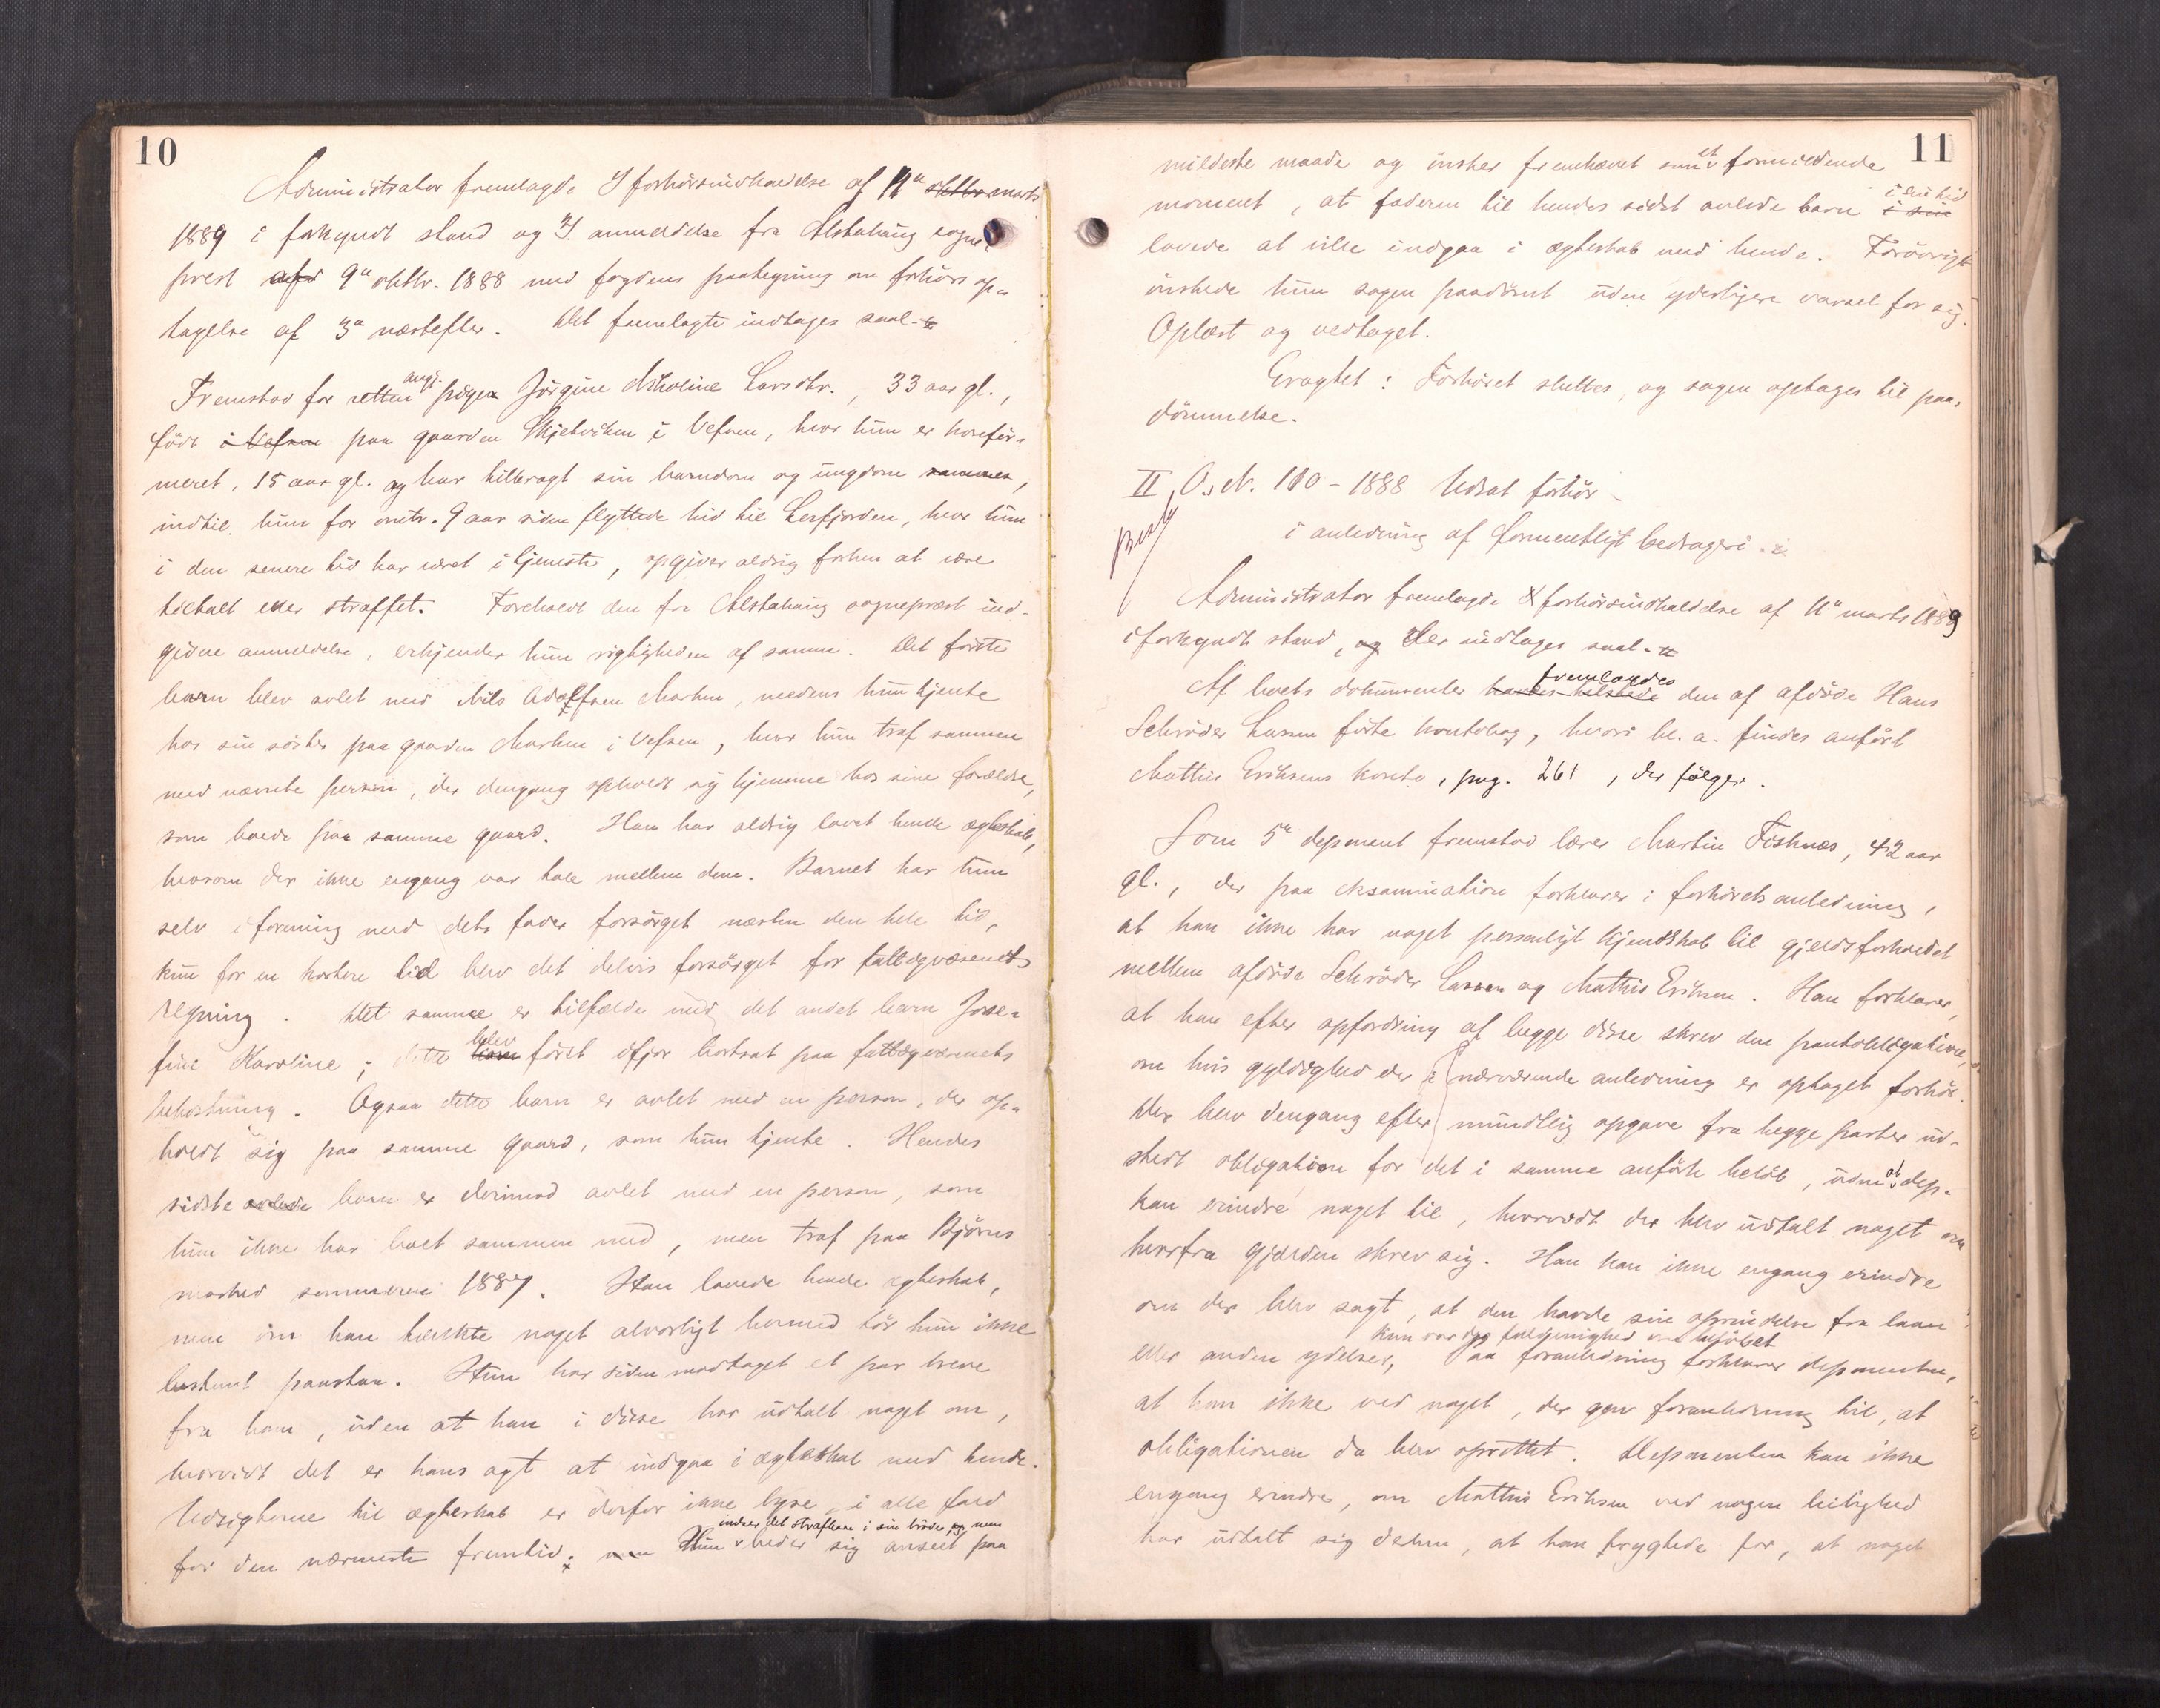 10
Administrator fremlagde forhørsindkaldelse af 11te oktbr marts
1889 i forkyndt stand og anmeldelse fra Alstahaug sogne-
prest afd 9de oktbr. 1888 med fogdens paategning om forhørs op-
tagelse af 3de næstefter. Det fremlagte indtages saal.
Fremstod for retten angj. pigen Jørgine Nikoline Larsdtr., 33 aar gl.,
født i Vefsen paa gaarden Skjelviken i Vefsen, hvor hun er konfir-
meret, 15 aar gl. og har tilbragt sin barndom og ungdom sammes,
indtil hun for omtr. 9 aar siden flyttede hid til Leirfjorden, hvor hun
i den senere tid har været i tjeneste, opgiver aldrig forhen at være
tiltalt eller straffet. Foreholdt den fra Alstahaug sogneprest ind-
givne anmeldelse, erkjender hun rigtigheden af samme. Det første
barn blev avlet med Nils Adolfsen Marken, medens hun tjente
hos sin søster paa gaarden Marken i Vefsen, hvor hun traf sammen
med nævnte person, der dengang opholdt sig hjemme hos sine forældre,
som boede paa samme gaard. Han har aldrig lovet hende ægteskab,
hvorom der ikke engang var tale mellem dem. Barnet har hun
selv i forening med dets fader forsørget næsten den hele tid,
kun for en kortere tid blev det delvis forsørget for fattigvæsenets
regning. Det samme er tilfælde med det andet barn Jose-
fine Karoline; dette barn blev først ifjor bortsat paa fattigvæsenets
bekostning. Ogsaa dette barn er avlet med en person, der op-
holdt sig paa samme gaard, som hun tjente. Hendes
sidste avlede barn er derimod avlet med en person, som
hun ikke har boet sammen med, men traf paa Bjørns
marked sommeren 1887. Han lovede hende ægteskab,
men om han tænkte noget alvorligt hermed tør hun ikke
bestemt paastaa. Hun har siden modtaget et par breve
fra ham, uden at han i disse har udtalt noget om,
hvorvidt det er hans agt at indgaa i ægteskab med hende.
Udsigterne til ægteskab er derfor ikke lyse, i alle fald
indser det strafbare i sin brøde, og men
for den nærmeste fremtid. men Hun beder sig anseet paa
11
mildeste maade og ønsker fremhævet som et formildende
moment, at faderen til hendes sidst avlede barn i sin i sin tid
lovede at ville indgaa i ægteskab med hende. Forøvrigt
ønskede hun sagen paadømt uden yderligere varsel for sig.
Oplæst og vedtaget.
Eragtet: Forhøret sluttes, og sagen optages til paa-
dømmelse.
II, O.s. N. 110 - 1888 Udsat forhør
i anledning af formentligt bedrageri.
Administrator fremlagde forhørsindkaldelse af 11te marts 1889
i forkyndt stand, og der indtages saal.
Af boets dokumenter havdes tilstede fremlagdes den af afdøde Hans
Schrøder Larsen førte kontobog, hvori bl. a. findes anført
Mathis Eriksens konto, pag. 261, der følger.
Som 5te deponent fremstod lærer Martin Fisknæs, 42 aar
gl., der paa eksamination forklarer i forhørets anledning,
at han ikke har noget personligt kjendskab til gjældsforholdet
mellem afdøde Schrøder Larsen og Mathis Eriksen. Han forklarer,
at han efter opfordring af begge disse skrev den pantobligation,
om hvis gyldighed der i nærværende anledning er optaget forhør.
Der blev dengang efter mundtlig opgave fra begge parter ud-
stedt obligation for det i samme anførte beløb, uden at dep.
kan erindre noget til, hvorvidt der blev udtalt noget om
hvorfra gjælden skrev sig. Han kan ikke engang erindre
om der blev sagt, at den havde sin oprindelse fra laan
kun var der enighed om beløbet
eller anden ydelser, Paa foranledning forklarer deponenten,
at han ikke ved noget, der gav foranledning til, at
obligationen da blev oprettet. Deponenten kan ikke
engang erindre, om Mathis Eriksen ved nogen leilighed
har udtalt sig derhen, at han frygtede for, at noget